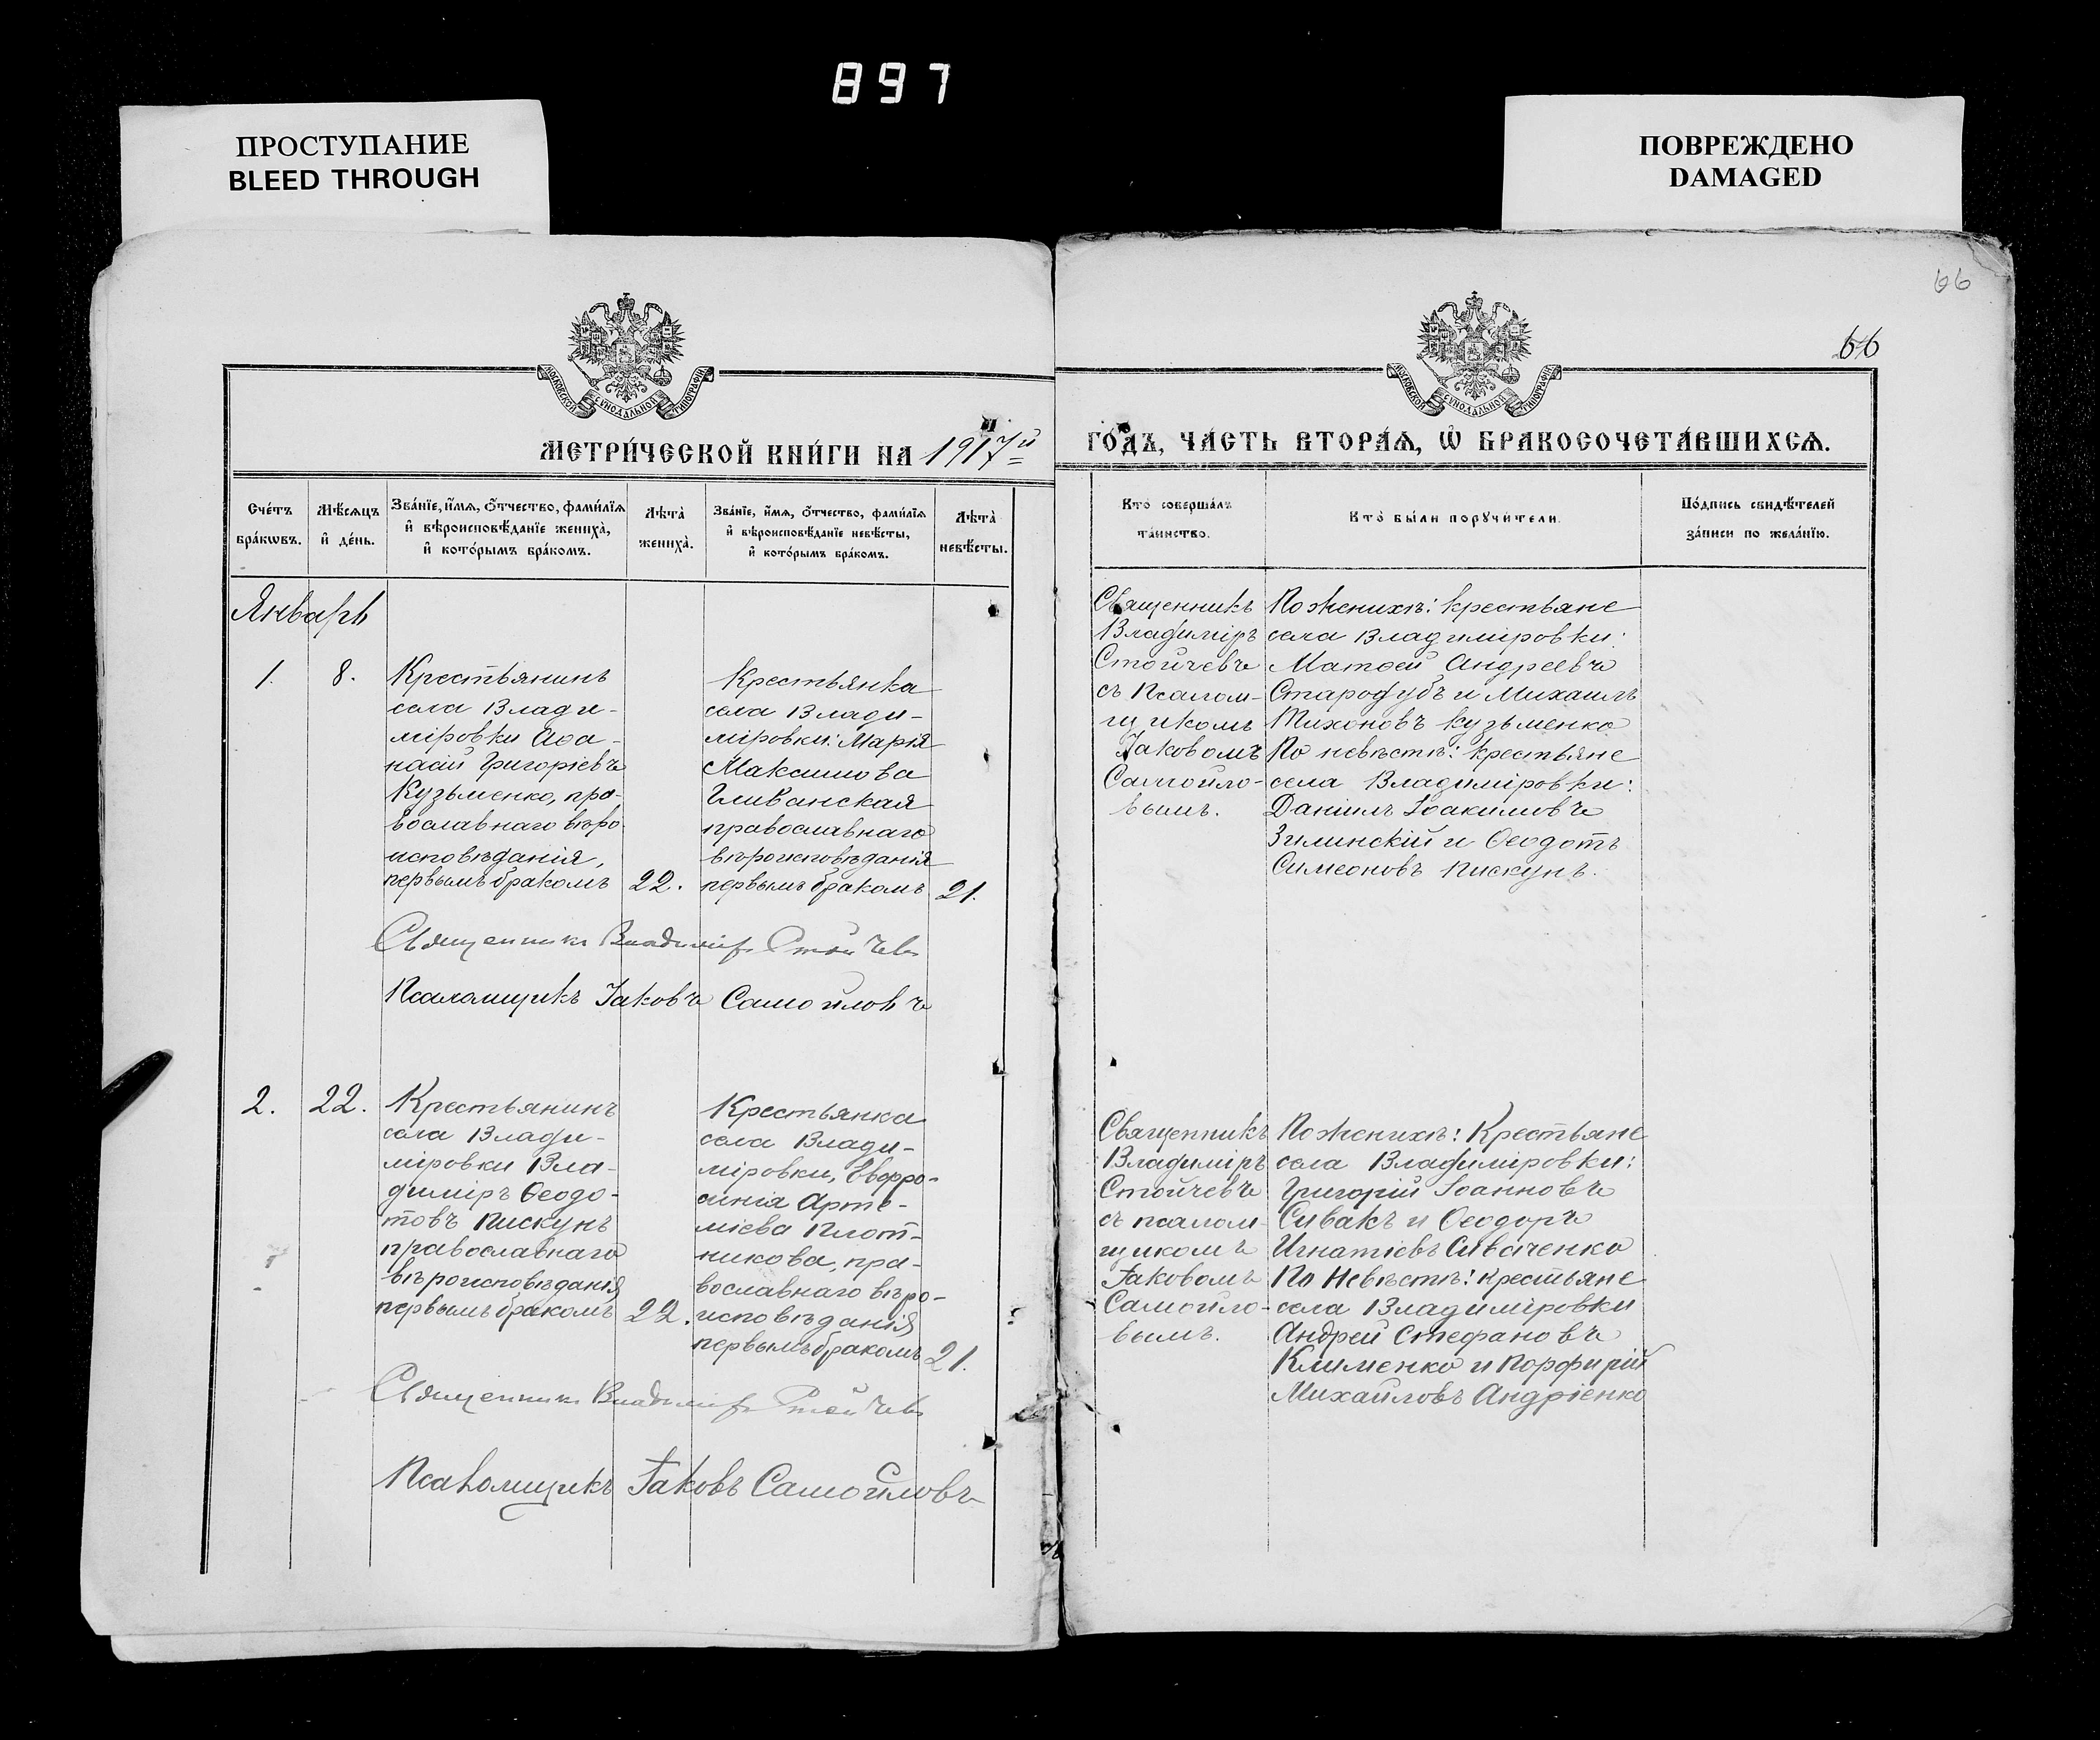 897
ПРОСТУПАНИЕ
BLEED THROUGH
ПОВРЕЖДЕНО
DAMAGED
66
66
МОСКОВСКОЙ СѴНОДАЛЬНОЙ ТИПОГРАФІИ
МОСКОВСКОЙ СѴНОДАЛЬНОЙ ТИПОГРАФІИ
МЕТРИ́ЧЕСКОЙ КНИ́ГИ НА 1917й
ГО́ДЪ, ЧА́СТЬ ВТОРА́Ѧ, Ѽ БРАКОСОЧЕТА́ВШИХСѦ.
Сче́тъ
бра́кωвъ.
Мѣ́сяцъ
и҆ де́нь.
Зва́нїе, и҆́мѧ, ѻ҆́тчество, фами́лїѧ
и҆ вѣроисповѣ́данїе жениха̀,
и҆ кото́рымъ бра́комъ.
Лѣ́та̀
жениха̀.
Зва́нїе, и҆́мѧ, ѻ҆́тчество, фами́лїѧ
и҆ вѣроисповѣ́данїе невѣ́сты,
и҆ кото́рымъ бра́комъ.
Лѣ́та̀
невѣ́сты.
Кто̀ соверша́лъ
та́инство.
Кто̀ бы́ли порꙋчи́тели.
По́дпись свидѣ́телей
за́писи по жела́нїю.
Январь
1.
8.
Крестьянинъ
села Влади-
міровки Аѳа-
насій Григоріевъ
Кузьменко, пра-
вославнаго вѣро
исповѣданія,
первымъ бракомъ
22.
Крестьянка
села Влади-
міровки: Марія
Максимова
Гливанская
православнаго
вѣроисповѣданія
первымъ бракомъ
21.
Священникъ
Владиміръ
Стойчевъ
съ Псалом-
щикомъ
Іаковомъ
Самойло-
вымъ.
По женихѣ: крестьяне
села Владиміровки:
Матѳей Андреевъ
Стародубъ и Михаилъ
Тихоновъ Кузьменко
По невѣстѣ: крестьяне
села Владиміровки:
Даніилъ Іоакимовъ
Зилинскій и Ѳеодотъ
Симеоновъ Пискунъ.
Священникъ Владиміръ Стойчевъ
Псаломщикъ Іаковъ Самойловъ
2.
22.
Крестьянинъ
села Влади-
міровки Вла-
диміръ Ѳеодо-
товъ Пискунъ
православнаго
вѣроисповѣданія
первымъ бракомъ
22.
Крестьянка
села Влади-
міровки, Евфро-
синія Арте-
міева Плот-
никова, пра-
вославнаго вѣро-
исповѣданія
первымъ бракомъ
21.
Священникъ
Владиміръ
Стойчевъ
съ псалом-
щикомъ
Іаковомъ
Самойло-
вымъ.
По женихѣ: Крестьяне
села Владиміровки:
Григорій Іоанновъ
Сивакъ и Ѳеодоръ
Игнатіевъ Сиваченко
По Невѣстѣ: крестьяне
села Владиміровки
Андрей Стефановъ
Клименко и Порфирій
Михайловъ Андріенко
Священникъ Владиміръ Стойчевъ
Псаломщикъ Іаковъ Самойловъ